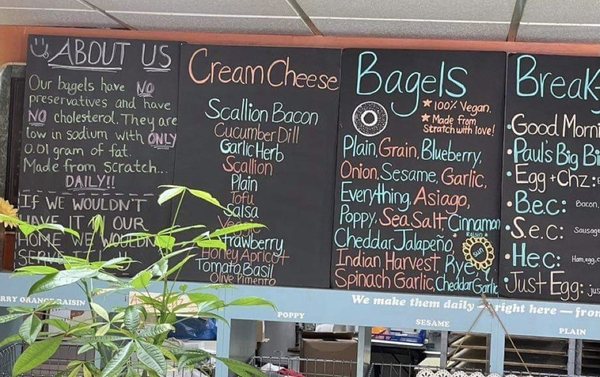 ABOUT US
Our bagels have NO
preservatives and have
NO cholesterol. They are
low in sodium with ONLY
0.01 gram of fat.
Made from scratch...
DAILY!!
IF WE WOULDN'T
HAVE IT IN OUR
HOME WE WOULDN'T
SERVE
Cream Cheese
Scallion Bacon
Cucumber Dill
Garlic Herb
Scallion
Plain
Tofu
Salsa
Veggie
Strawberry
Honey Apricot
Tomato Basil
Olive Pimento
Bagels
100% Vegan.
Made from
Scratch with love!
Plain, Grain, Blueberry,
Onion, Sesame, Garlic,
Everything, Asiago,
Poppy, Sea Salt, Cinnamon
Raisin
Cheddar Jalapeño
Indian Harvest, Rye,
Spinach Garlic, Cheddar Garlic
Break
Good Morni
Paul's Big Bi
Egg + Chz:
B.e.c: Bacon,
S.e.c: Sausage
H.e.c: Ham, egg, c
Just Egg: jus
We make them daily right here - from
RRY ORANGE RAISIN
POPPY
SESAME
PLAIN